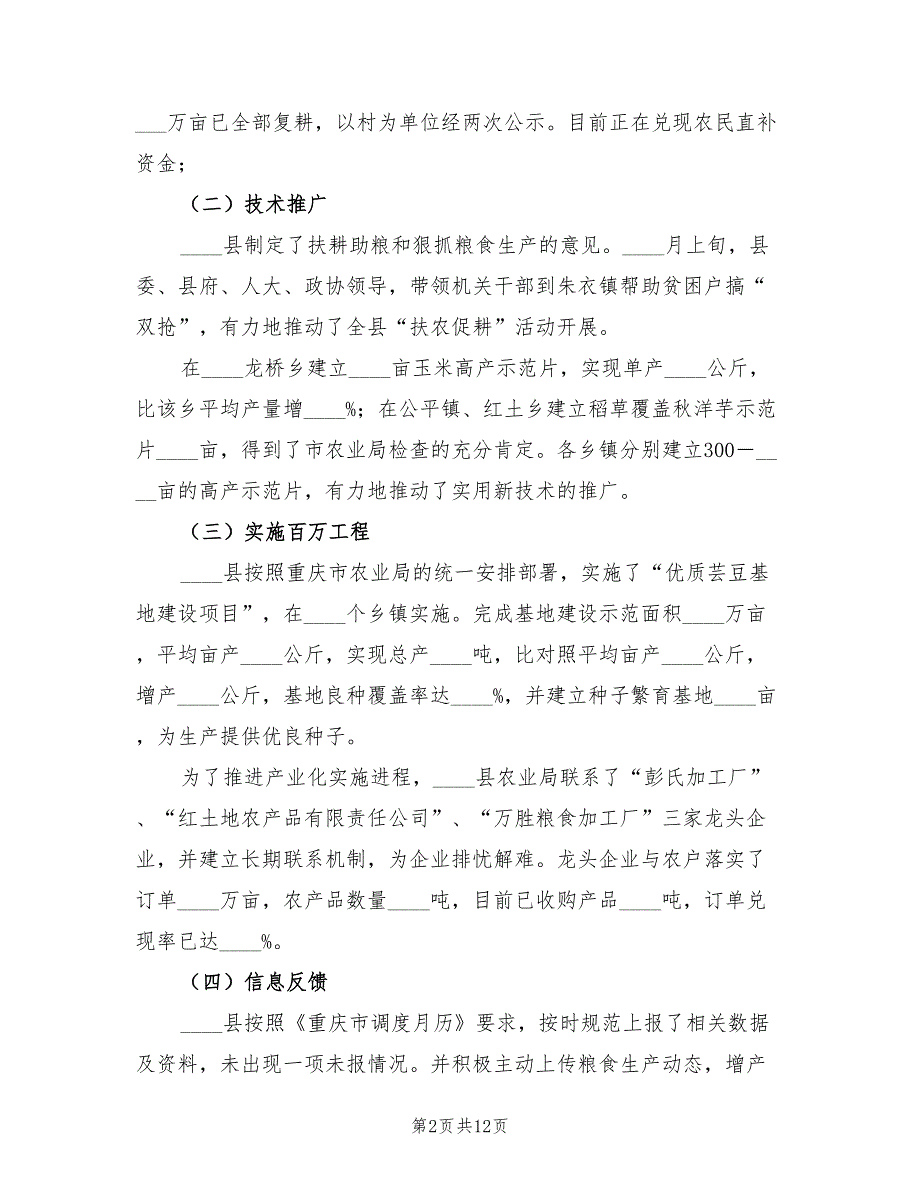 ___万亩已全部复耕，以村为单位经两次公示。目前正在兑现农民直补
资金；
（二）技术推广
____县制定了扶耕助粮和狠抓粮食生产的意见。____月上旬，县
委、县府、人大、政协领导，带领机关干部到朱衣镇帮助贫困户搞“
双抢”，有力地推动了全县“扶农促耕”活动开展。
在____龙桥乡建立____亩玉米高产示范片，实现单产____公斤，
比该乡平均产量增____%；在公平镇、红土乡建立稻草覆盖秋洋芋示范
片____亩，得到了市农业局检查的充分肯定。各乡镇分别建立300－__
__亩的高产示范片，有力地推动了实用新技术的推广。
（三）实施百万工程
____县按照重庆市农业局的统一安排部署，实施了“优质芸豆基
地建设项目”，在____个乡镇实施。完成基地建设示范面积____万亩
，平均亩产____公斤，实现总产____吨，比对照平均亩产____公斤，
增产____公斤，基地良种覆盖率达____%，并建立种子繁育基地____亩
，为生产提供优良种子。
为了推进产业化实施进程，____县农业局联系了“彭氏加工厂”
、“红土地农产品有限责任公司”、“万胜粮食加工厂”三家龙头企
业，并建立长期联系机制，为企业排忧解难。龙头企业与农户落实了
订单____万亩，农产品数量____吨，目前已收购产品____吨，订单兑
现率已达____%。
（四）信息反馈
____县按照《重庆市调度月历》要求，按时规范上报了相关数据
及资料，未出现一项未报情况。并积极主动上传粮食生产动态，增产
第2页共12页